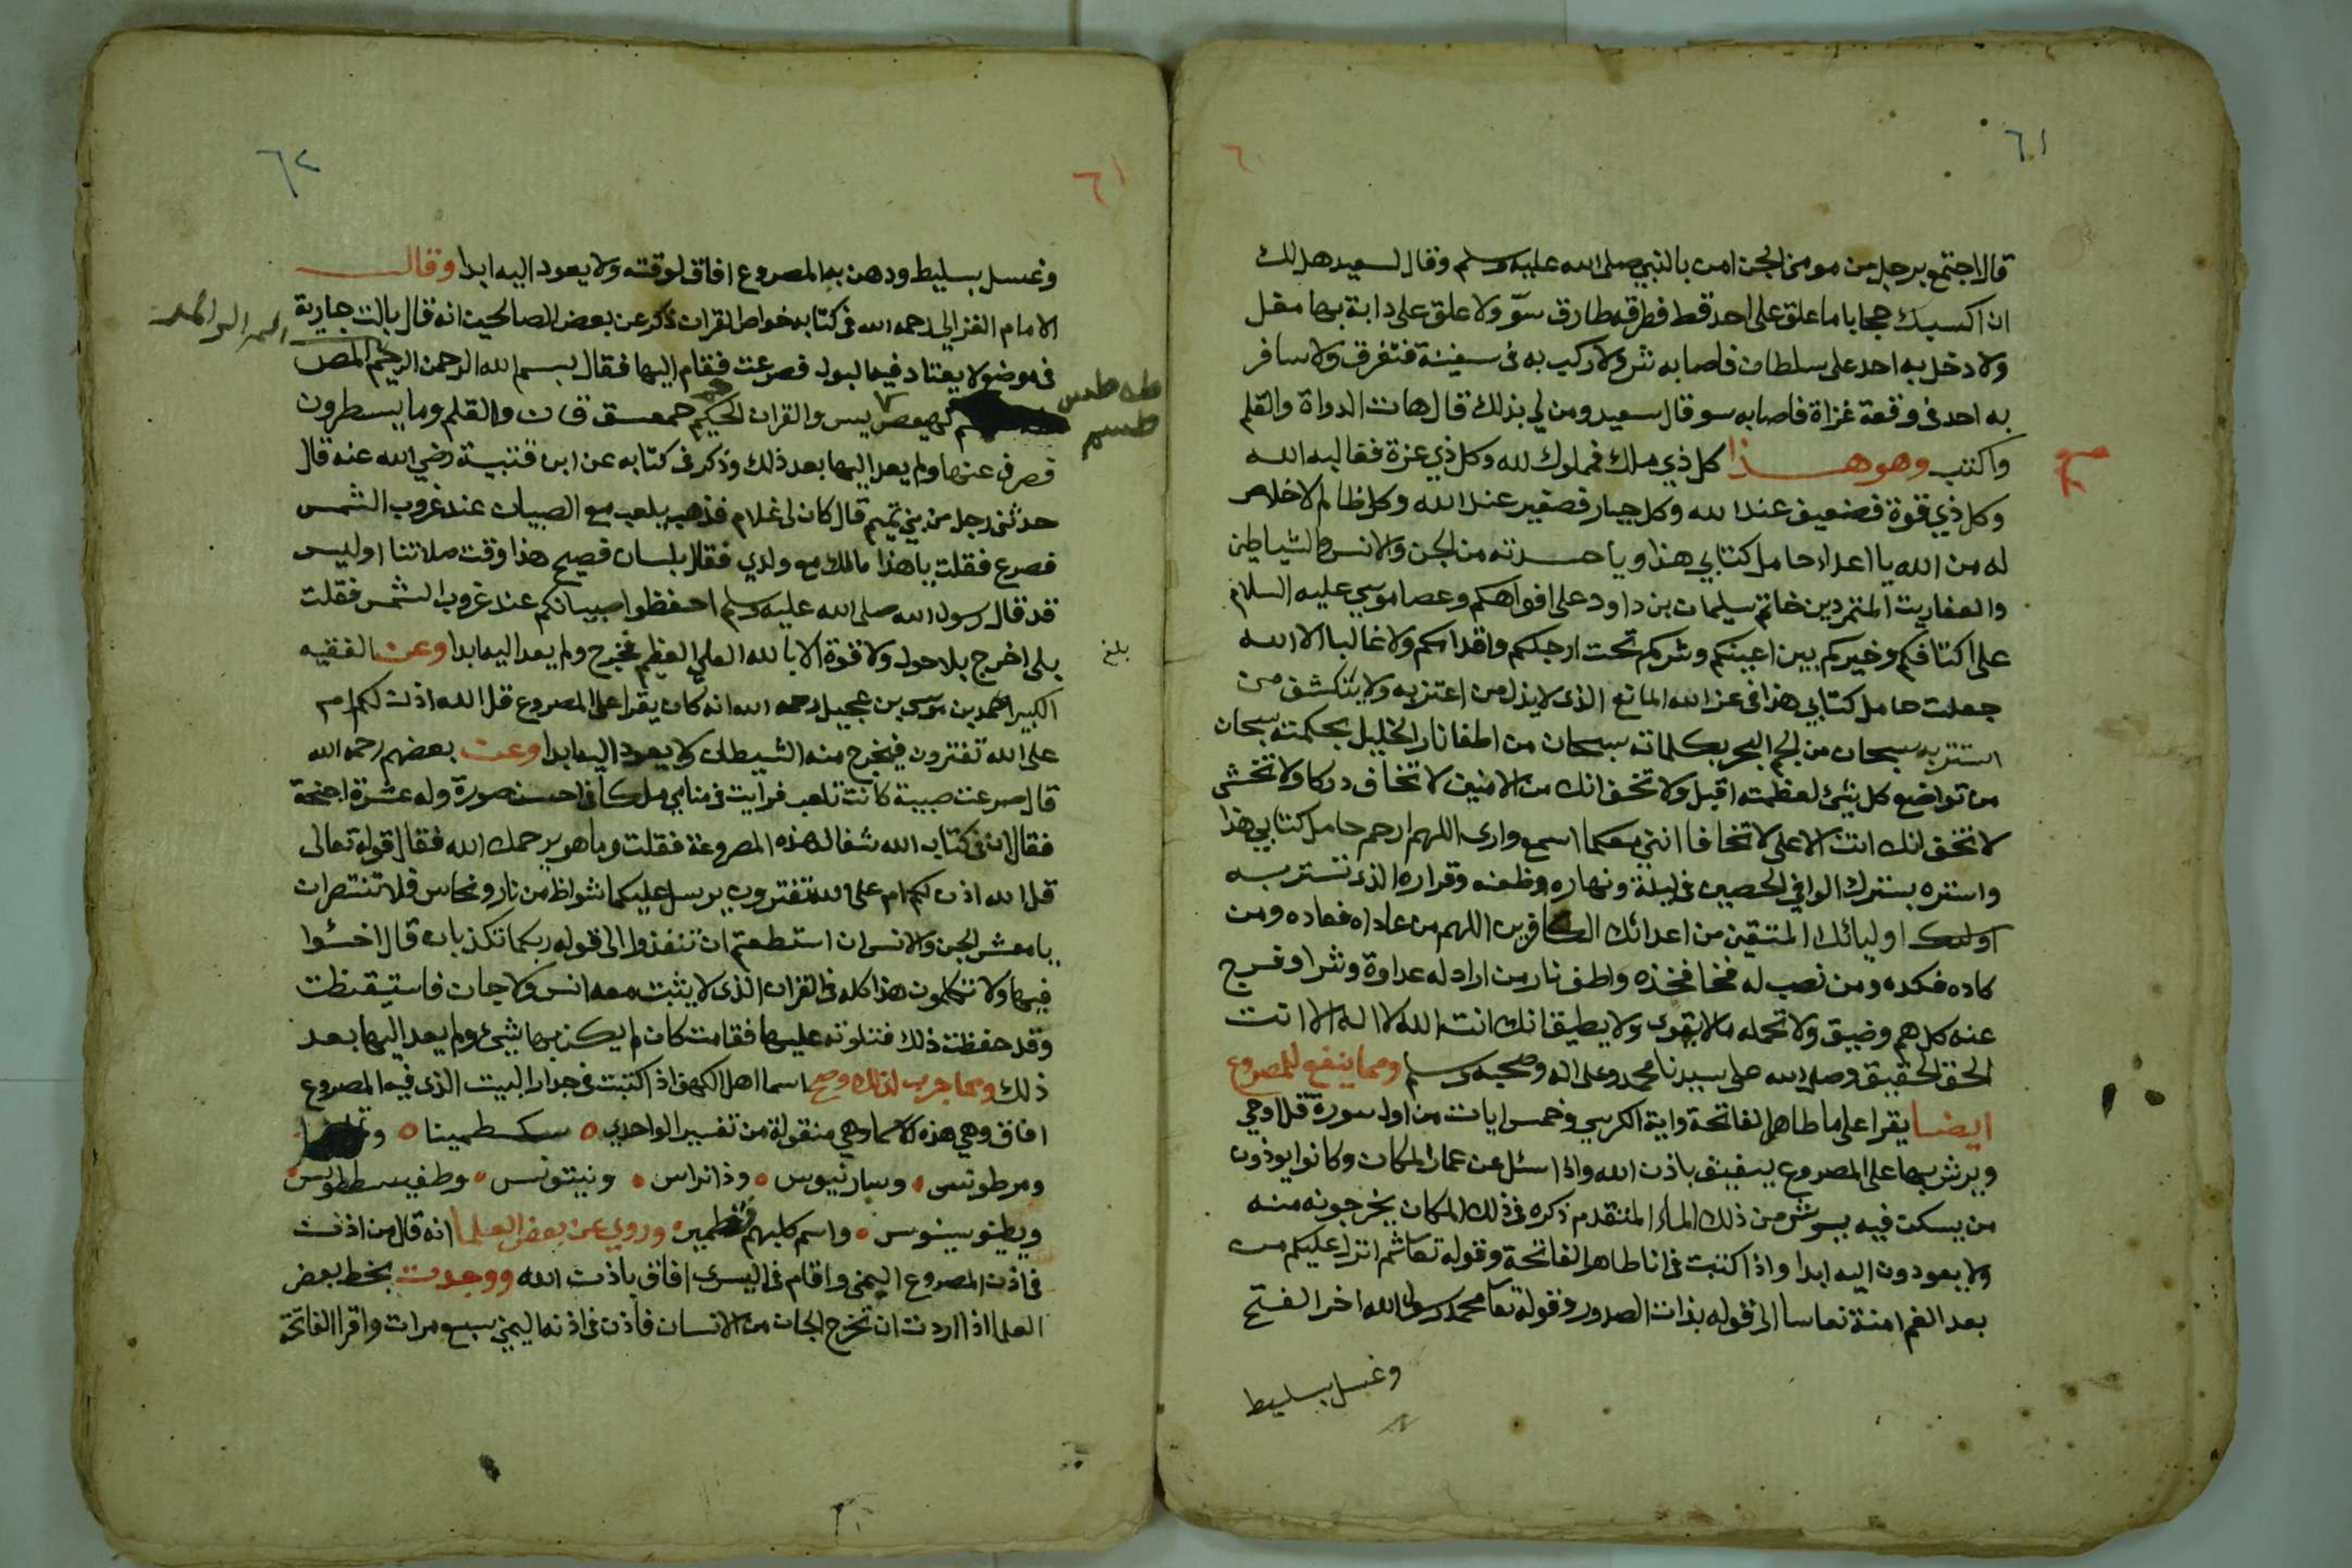 ٦١
٦٠
قال اجتمع برجل من مومن الجن امن بالنبي صلى الله عليه وسلم وقال لسعيد هل لك
ان اكسبك حجابا ما علق على احد قط فطرقه طارق سوّ ولا علق على دابة بها مغل
ولا دخل به احد على سلطان فاصابه شر ولا ركب به فى سفينة فتغرق ولا سافر
به احد فى وقعة غزاة فاصابه سو قال سعيد ومن لي بذلك قال هات الدواة والقلم
واكتب وهو هذا كل ذي ملك فمملوك لله وكل ذي عزة فغالبه الله
وكل ذي قوة فضعيف عند الله وكل جبار فصغير عند الله وكل ظالم لاخلاص
له من الله يا اعداء حامل كتابي هذا ويا حسدته من الجن والانس والشياطين
والعفاريت المتمردين خاتم سليمان بن داود على افواهكم وعصا موسي عليه السلام
على اكتافكم وخيركم بين اعينكم وشركم تحت ارجلكم واقدامكم ولا غالبا الا الله
جعلت حامل كتابي هذا فى عز الله المانع الذى لايذل من اعتز به ولا ينكشف من
استتر به سبحان من لجم البحر بكلماته سبحان من اطفا نار الخليل بحكمته سبحان
من تواضع كل شئ لعظمته اقبل ولا تخف انك من الامنين لا تخاف دركا ولا تخشى
لا تخف انك انت الاعلى لا تخافا انني معكما اسمع وارى اللهم ارحم حامل كتابي هذا
واستره بسترك الوافي الحصين فى ليلة ونهاره وظعنه وقراره الذى تستر به
اوليك اوليائك المتقين من اعدائك الكافرين اللهم من عاداه فعاده ومن
كاده فكده ومن نصب له فخا فخذه واطف نار من اراد له عداوة وشرا وفرج
عنه كل هم وضيق ولا تحمله مالا يقوى ولا يطيق انك انت الله لا اله الا انت
الحق الحقيق وصلى الله على سيدنا محمد وعلى اله وصحبه وسلم ومما ينفع للمصروع
ايضا يقرا على ما طاهر الفاتحة واية الكرسي وخمس ايات من اول سورة قل اوحي
ويرش بها على المصروع يبفيق باذن الله واذا سئل عن عمار المكان وكانوا يوذون
من يسكن فيه يرش من ذلك الماء المتقدم ذكره فى ذلك المكان يخرجونه منه
ولا يعودون اليه ابدا واذا كتبت فى انا طاهر الفاتحة وقوله تعا ثم انزل عليكم من
بعد الغم امنة نعاسا الى قوله بذات الصدور وقوله تعا محمد رسول الله اخر الفتح
وغسل بسليط
٦٢
٦١
وغسل بسليط ودهن به المصروع افاق لوقته ولا يعود اليه ابدا وقال
الامام الغزالي رحمه الله فى كتابه خواص القران ذكر عن بعض الصالحين انه قال بالت جارية
فى موضع لا يعتاد فيه البول فصرعت فقام اليها فقال بسم الله الرحمن الرحيم المص
طه طس
طسم
كهيعص يس والقران الحكيم حم حمعسق ق ن والقلم وما يسطرون
فصرف عنها ولم يعد اليها بعد ذلك وذكر فى كتابه عن ابن قتيبة رضي الله عنه قال
حدثنى رجل من بني تميم قال كان لى غلام فذهب يلعب مع الصبيان عند غروب الشمس
فصرع فقلت يا هذا مالك مع ولدي فقال بلسان فصيح هذا وقت صلاتنا اوليس
قد قال رسول الله صلى الله عليه وسلم احفظوا صبيانكم عند غروب الشمس فقلت
بلى اخرج بلا حول ولا قوة الا بالله العلي العظيم فخرج ولم يعد اليه ابدا وعن الفقيه
بلغ
الكبير احمد بن موسى بن عجيل رحمه الله انه كان يقرا على المصروع قل الله اذن لكم ام
على الله تفترون فيخرج منه الشيطان ولا يعود اليه ابدا وعن بعضهم رحمه الله
قال صرعت صبية كانت تلعب فرايت فى منامي ملكا فى احسن صورة وله عشرة اجنحة
فقال ان فى كتاب الله شفا لهذه المصروعة فقلت وما هو يرحمك الله فقال قوله تعالى
قل الله اذن لكم ام على الله تفترون يرسل عليكما شواظ من نار ونحاس فلا تنتصران
يا معشر الجن والانس ان استطعتم ان تنفذوا الى قوله ربكما تكذبان قال اخسئوا
فيها ولا تكلمون هذا كله فى القران الذى لا يثبت معه انس ولا جان فاستيقظت
وقد حفظت ذلك فتلوته عليها فقامت كان لم يكن بها شئ ولم يعد اليها بعد
ذلك ومما جرب لذلك وصح اسما اهل الكهف اذا كتبت فى جدار البيت الذى فيه المصروع
افاق وهي هذه الاسما وهي منقولة من تفسير الواحدي ٥ سكسطمينا ٥
ومرطونسى ٥ وسارنيوس ٥ وذانراس ٥ ونينونس ٥ وطفيسططوس
ويطنوسينوس ٥ واسم كلبهم قطمير ٥ وروي عن بعض العلما انه قال من اذن
فى اذن المصروع اليمنى واقام فى اليسرى افاق باذن الله ووجدت بخط بعض
العلما اذا اردت ان تخرج الجان من الانسان فاذن فى اذنه اليمني سبع مرات واقرا الفاتحة